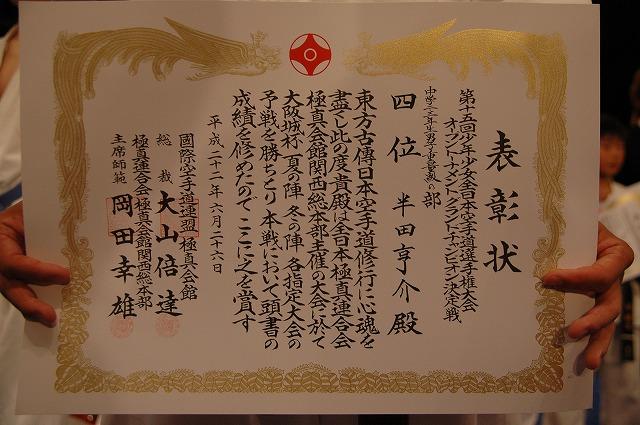 表彰状
第十五回少年少女全日本空手道選手権大会
オープントーナメントグランドチャンピオン決定戦
中学二・三年生男子重量級の部
四位　半田亨介殿
東方古傳日本空手道修行に心魂を
盡くし此の度貴殿は全日本極真連合会
極真会館関西総本部主催の大会に於て
大阪城杯夏の陣冬の陣各指定大会の
予戦を勝ちとり本戦において頭書の
成績を修めたのでここに之を賞す
平成二十二年六月二十六日
國際空手道連盟極真会館
総裁　大山倍達
極真連合会極真会館関西総本部
主席師範　岡田幸雄